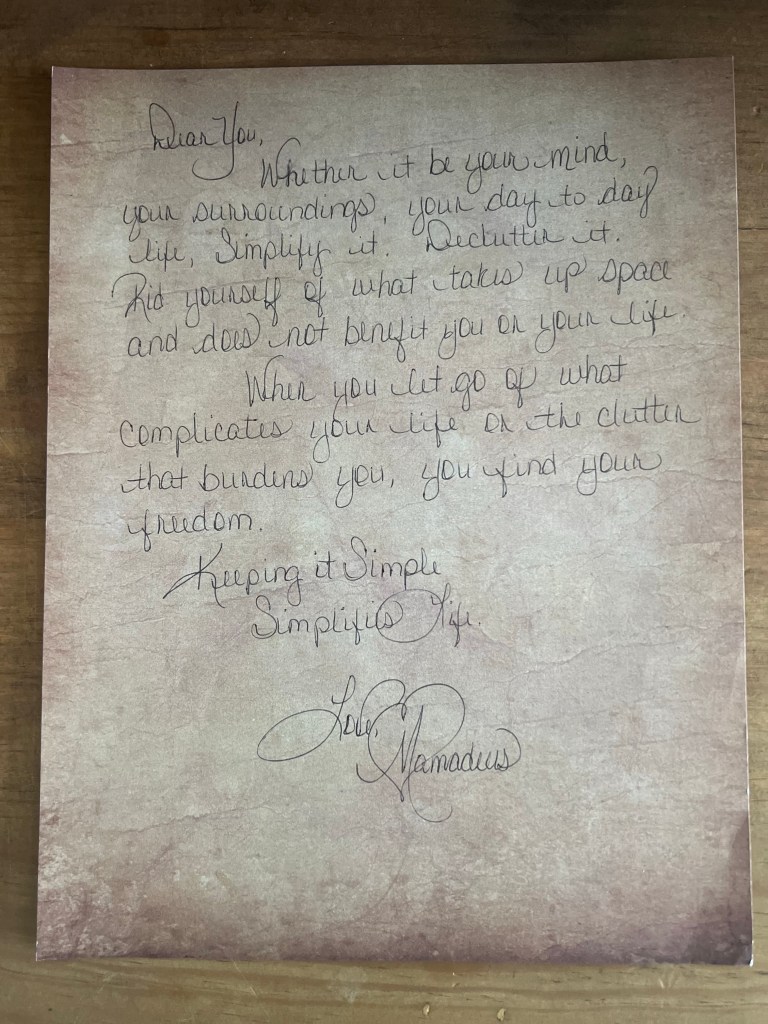 Dear You,
Whether it be your mind,
your surroundings, your day to day
life, Simplify it. Declutter it.
Rid yourself of what takes up space
and does not benefit you or your life.
When you let go of what
complicates your life or the clutter
that burdens you, you find your
freedom.
Keeping it Simple
Simplifies Life.
Love,
Mamadeus